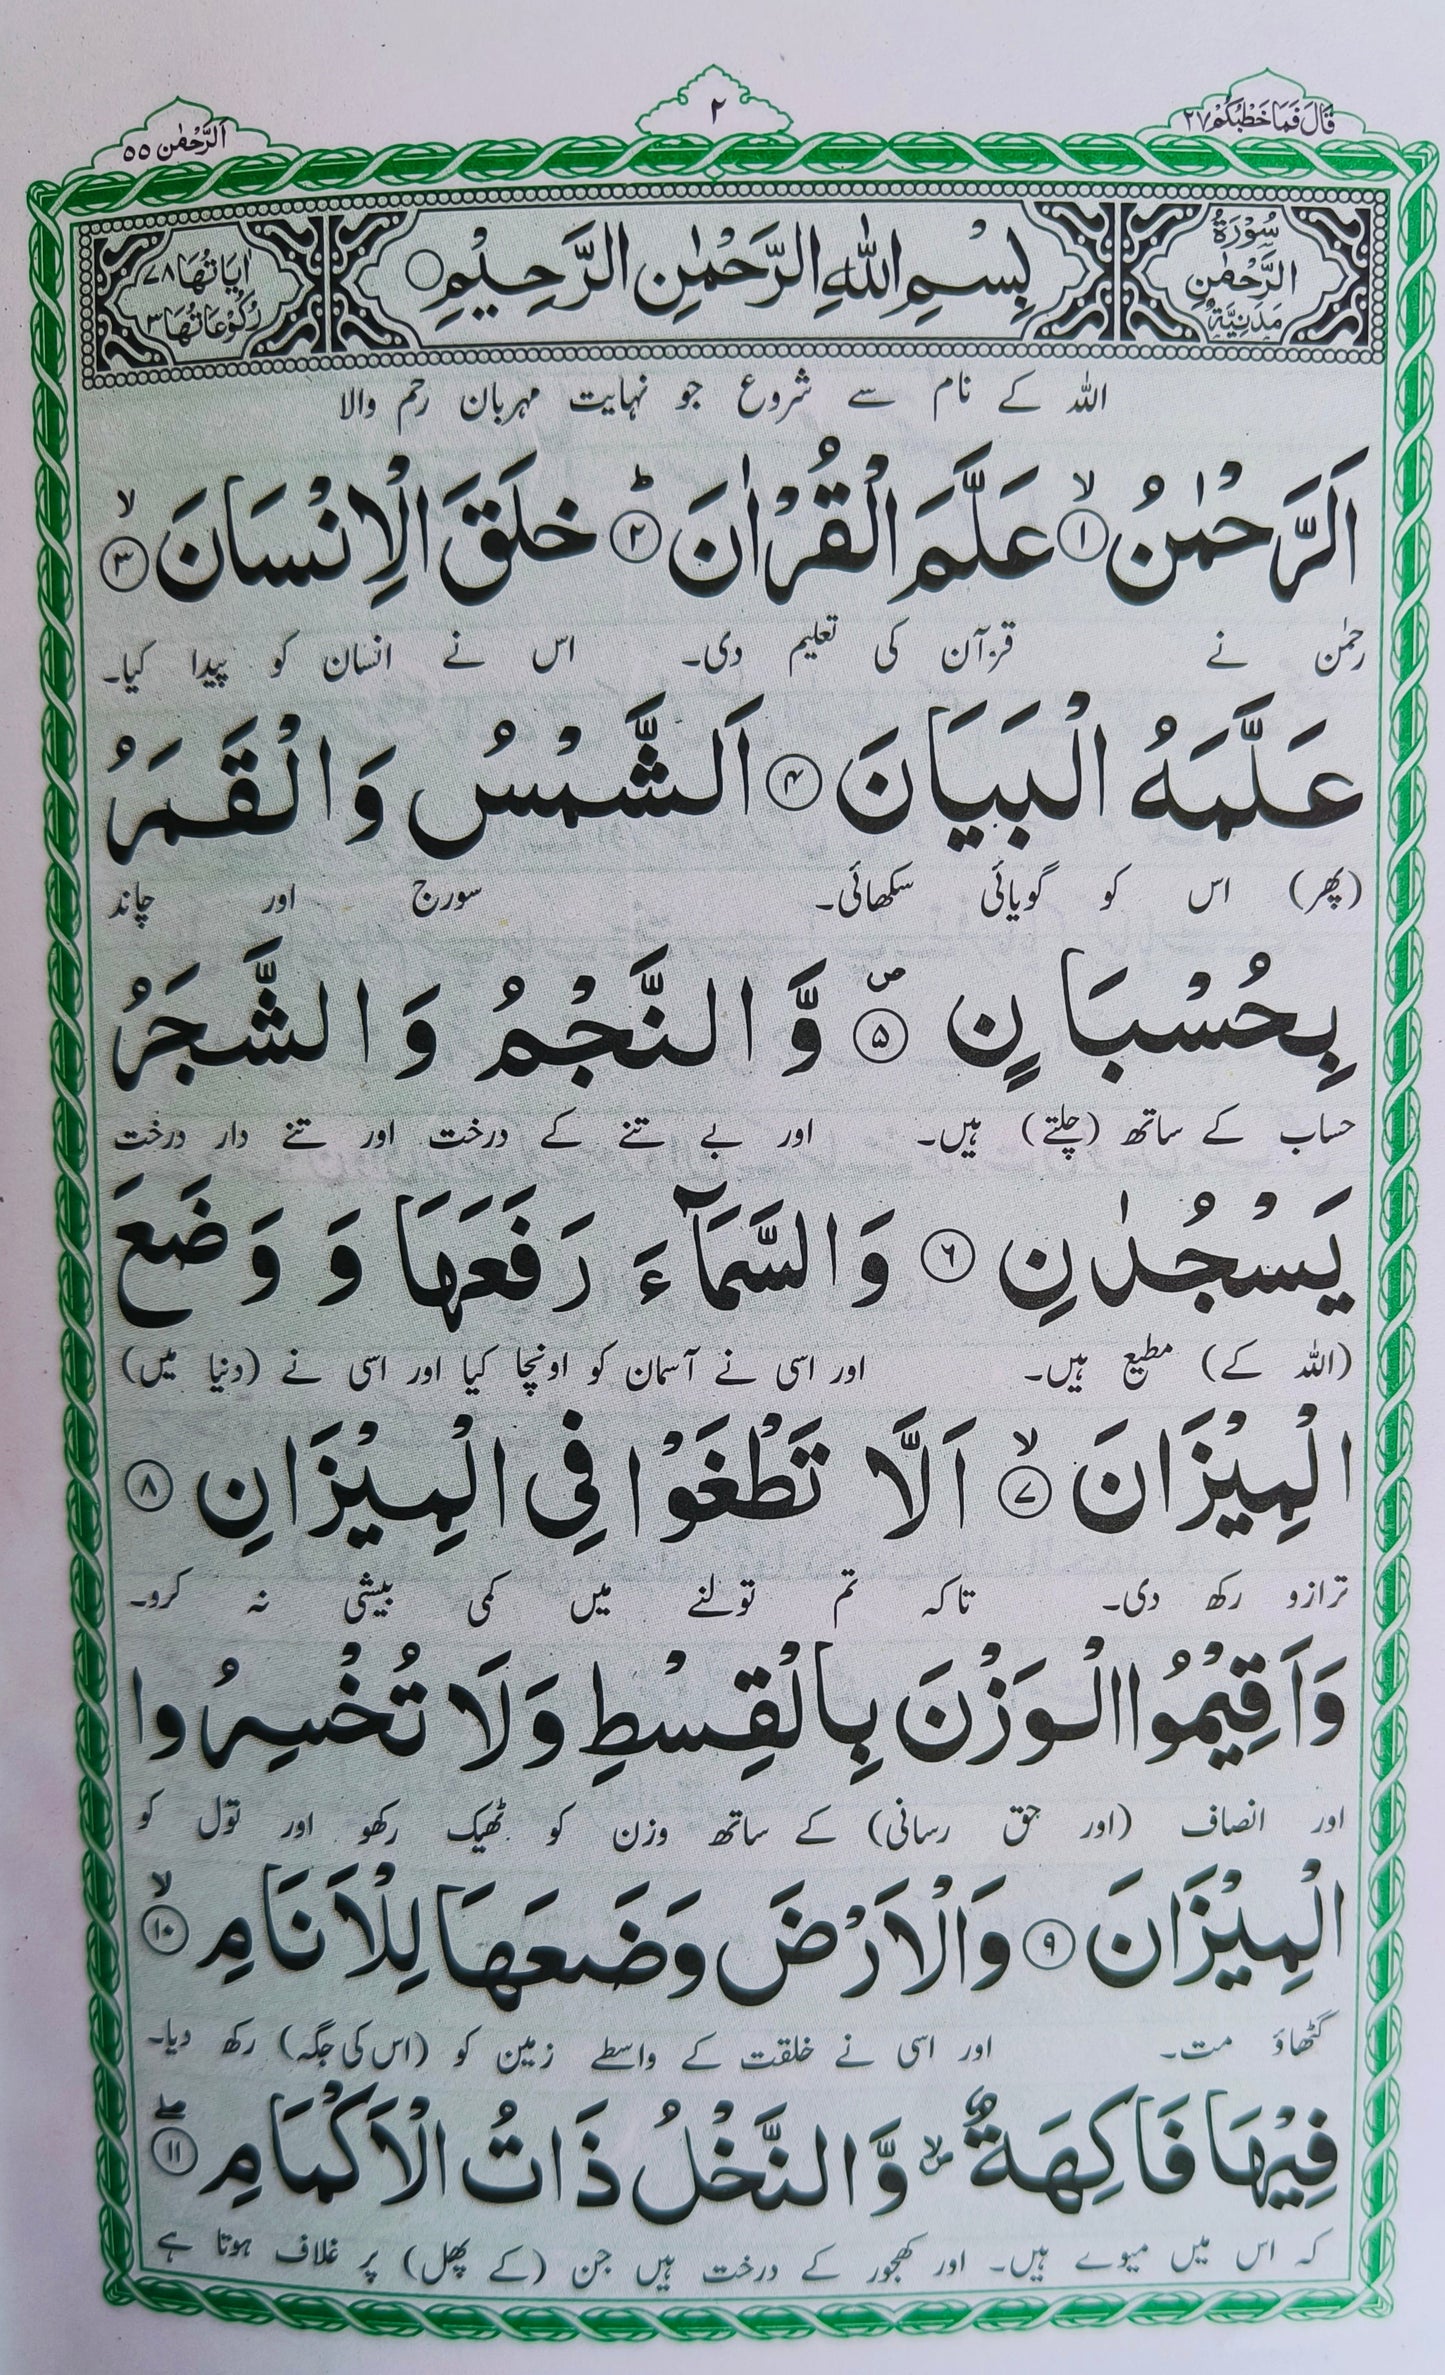 قَالَ فَمَا خَطْبُكُمْ ٢٧
٢
اَلرَّحْمٰن ٥٥
سُوْرَةُ الرَّحْمٰنِ مَدَنِيَّةٌ
بِسْمِ اللّٰهِ الرَّحْمٰنِ الرَّحِيْمِ ○
اٰيَاتُهَا ٧٨ رُكُوْعَاتُهَا ٣
اللہ کے نام سے شروع جو نہایت مہربان رحم والا
اَلرَّحْمٰنُ ۙ﴿۱﴾ عَلَّمَ الْقُرْاٰنَ ؕ﴿۲﴾ خَلَقَ الْاِنْسَانَ ۙ﴿۳﴾
رحمٰن نے قرآن کی تعلیم دی۔ اس نے انسان کو پیدا کیا۔
عَلَّمَهُ الْبَيَانَ ﴿۴﴾ اَلشَّمْسُ وَالْقَمَرُ
(پھر) اس کو گویائی سکھائی۔ سورج اور چاند
بِحُسْبَانٍ ۪﴿۵﴾ وَّالنَّجْمُ وَالشَّجَرُ
حساب کے ساتھ (چلتے) ہیں۔ اور بے تنے کے درخت اور تنے دار درخت
يَسْجُدٰنِ ﴿۶﴾ وَالسَّمَآءَ رَفَعَهَا وَ وَضَعَ
(اللہ کے) مطیع ہیں۔ اور اسی نے آسمان کو اونچا کیا اور اسی نے (دنیا میں)
الْمِيْزَانَ ۙ﴿۷﴾ اَلَّا تَطْغَوْا فِى الْمِيْزَانِ ﴿۸﴾
ترازو رکھ دی۔ تاکہ تم تولنے میں کمی بیشی نہ کرو۔
وَاَقِيْمُوا الْوَزْنَ بِالْقِسْطِ وَلَا تُخْسِرُوا
اور انصاف (اور حق رسانی) کے ساتھ وزن کو ٹھیک رکھو اور تول کو
الْمِيْزَانَ ﴿۹﴾ وَالْاَرْضَ وَضَعَهَا لِلْاَنَامِ ۙ﴿۱۰﴾
گھٹاؤ مت۔ اور اسی نے خلقت کے واسطے زمین کو (اس کی جگہ) رکھ دیا۔
فِيْهَا فَاكِهَةٌ ۪ۙ وَّالنَّخْلُ ذَاتُ الْاَكْمَامِ ۖ﴿۱۱﴾
کہ اس میں میوے ہیں۔ اور کھجور کے درخت ہیں جن (کے پھل) پر غلاف ہوتا ہے